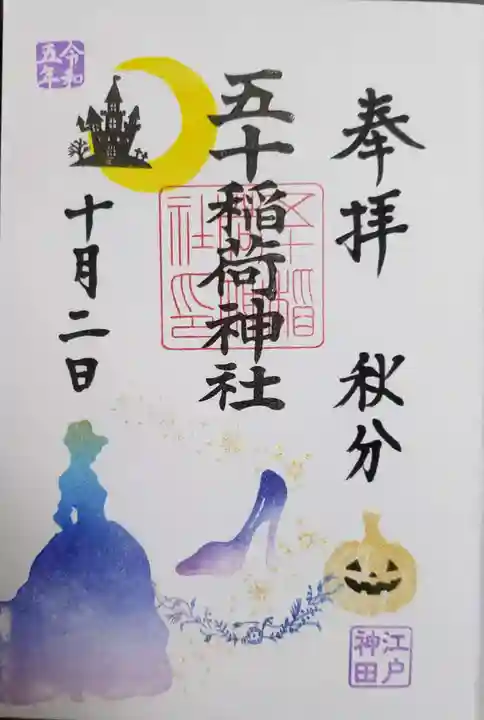 奉拝
秋分
江戸
神田
五十稲荷神社
令和
五年
十月二日